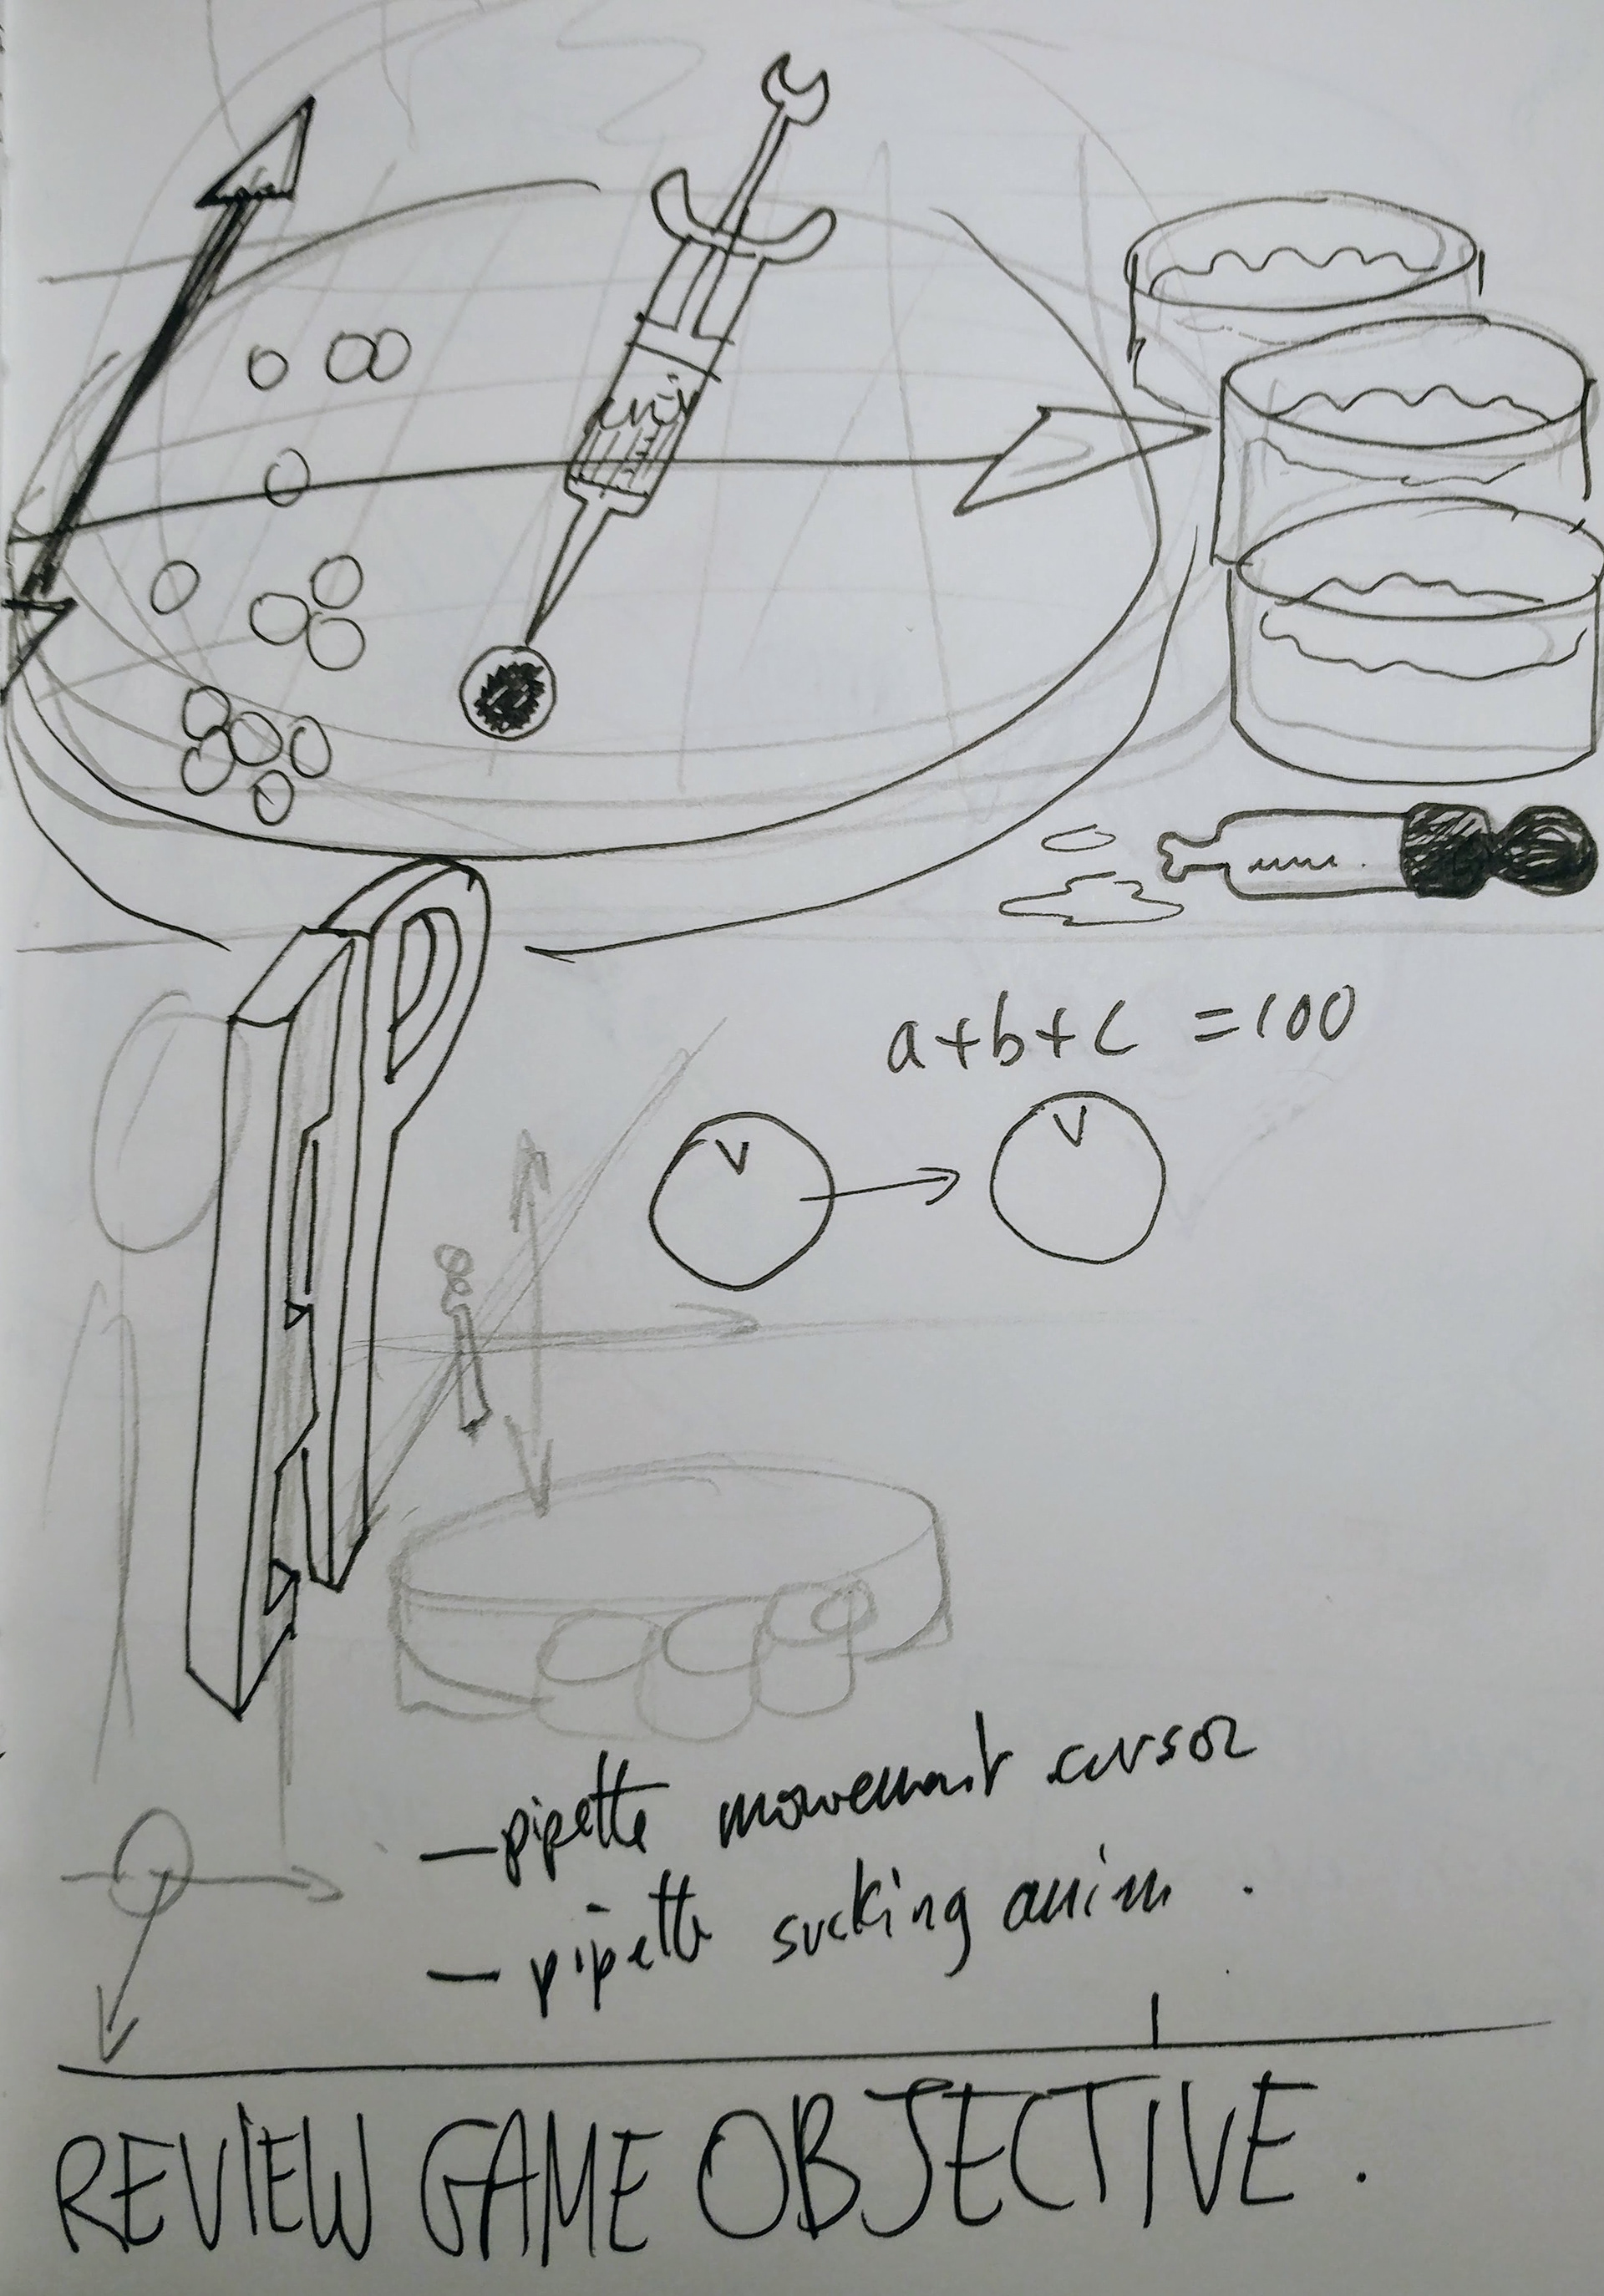 a+b+c =100
V
V
— pipette movement cursor
— pipette sucking anim.
REVIEW GAME OBJECTIVE.